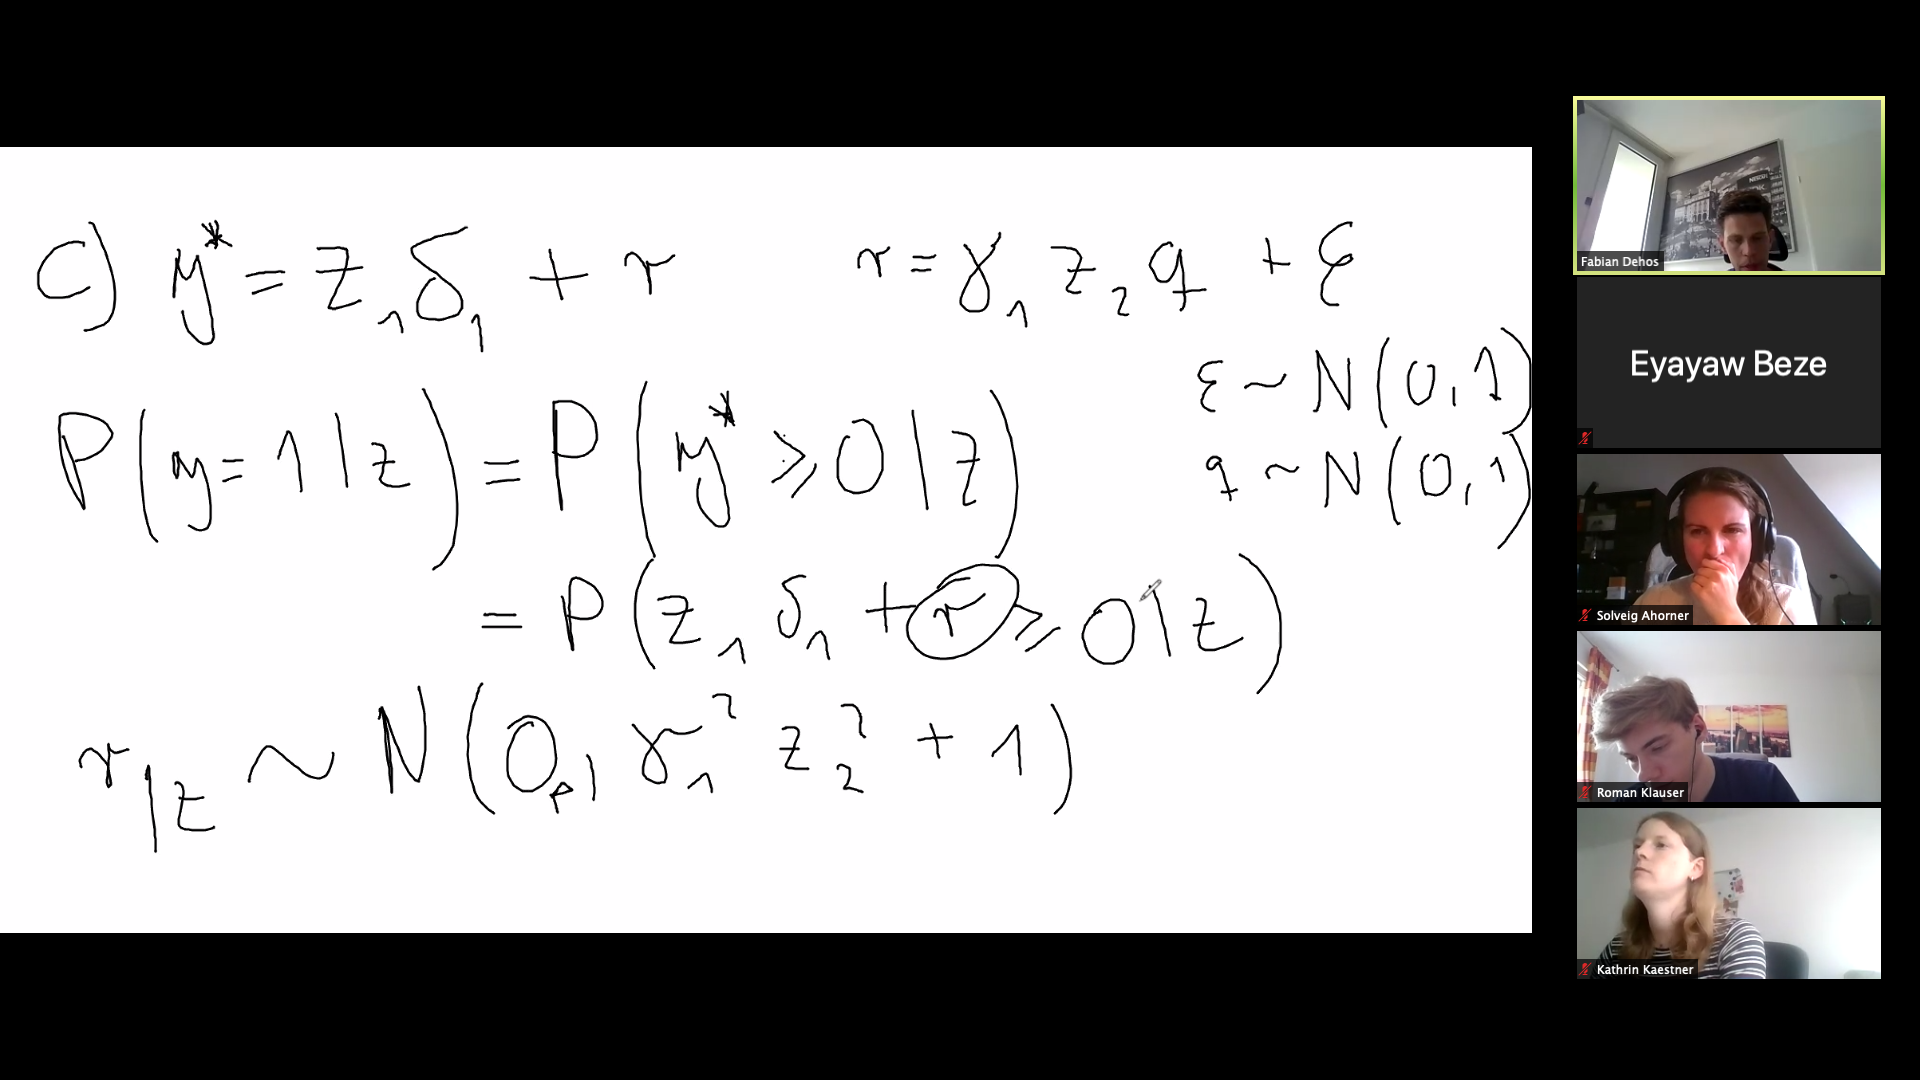 c) y* = z₁δ₁ + r r = γ₁ z₂ q + ε
ε ~ N(0,1)
P(y=1|z) = P(y* ≥ 0|z)
q ~ N(0,1)
= P(z₁ δ₁ + r ≥ 0|z)
r|z ~ N(0, γ₁² z₂² + 1)
Fabian Dehos
Eyayaw Beze
Solveig Ahorner
Roman Klauser
Kathrin Kaestner